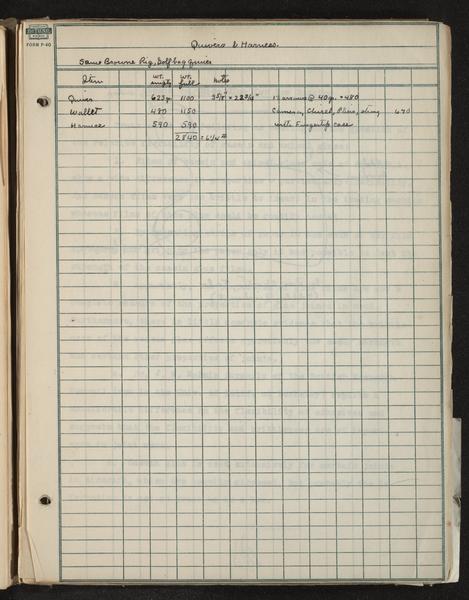 FORM P-60
Quivers & Harness.
Same Browne Rig, Golf bag quiver
Item wt. empty wt. full Notes
Quiver 623 gr. 1100 12 arrows @ 40 gr. = 480
Wallet 480 1150 Camera, Chisel, Pliers, string 670
Harness 590 590 with Fingertip case
2840 = 6 1/4 #